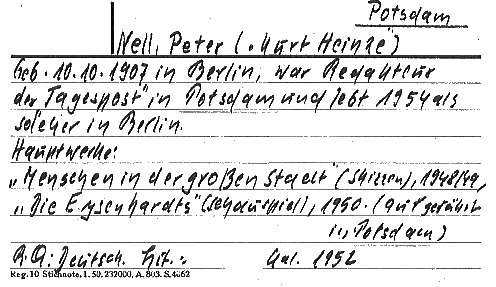 Potsdam
Nell, Peter (. Kurt Heinze)
Geb. 10.10.1907 in Berlin, war Redakteur
der Tagespost" in Potsdam und lebt 1954 als
solcher in Berlin.
Hauptwerke:
„Menschen in der großen Stadt" (Skizzen), 1948/49,
„Die Eysenhardts" (Schauspiel), 1950. (aufgeführt
in Potsdam)
R.Q: Deutsch. Lit. - Kal. 1952
Reg. 10 Stichnote, 1. 50. 232000, A. 803. S. 4062